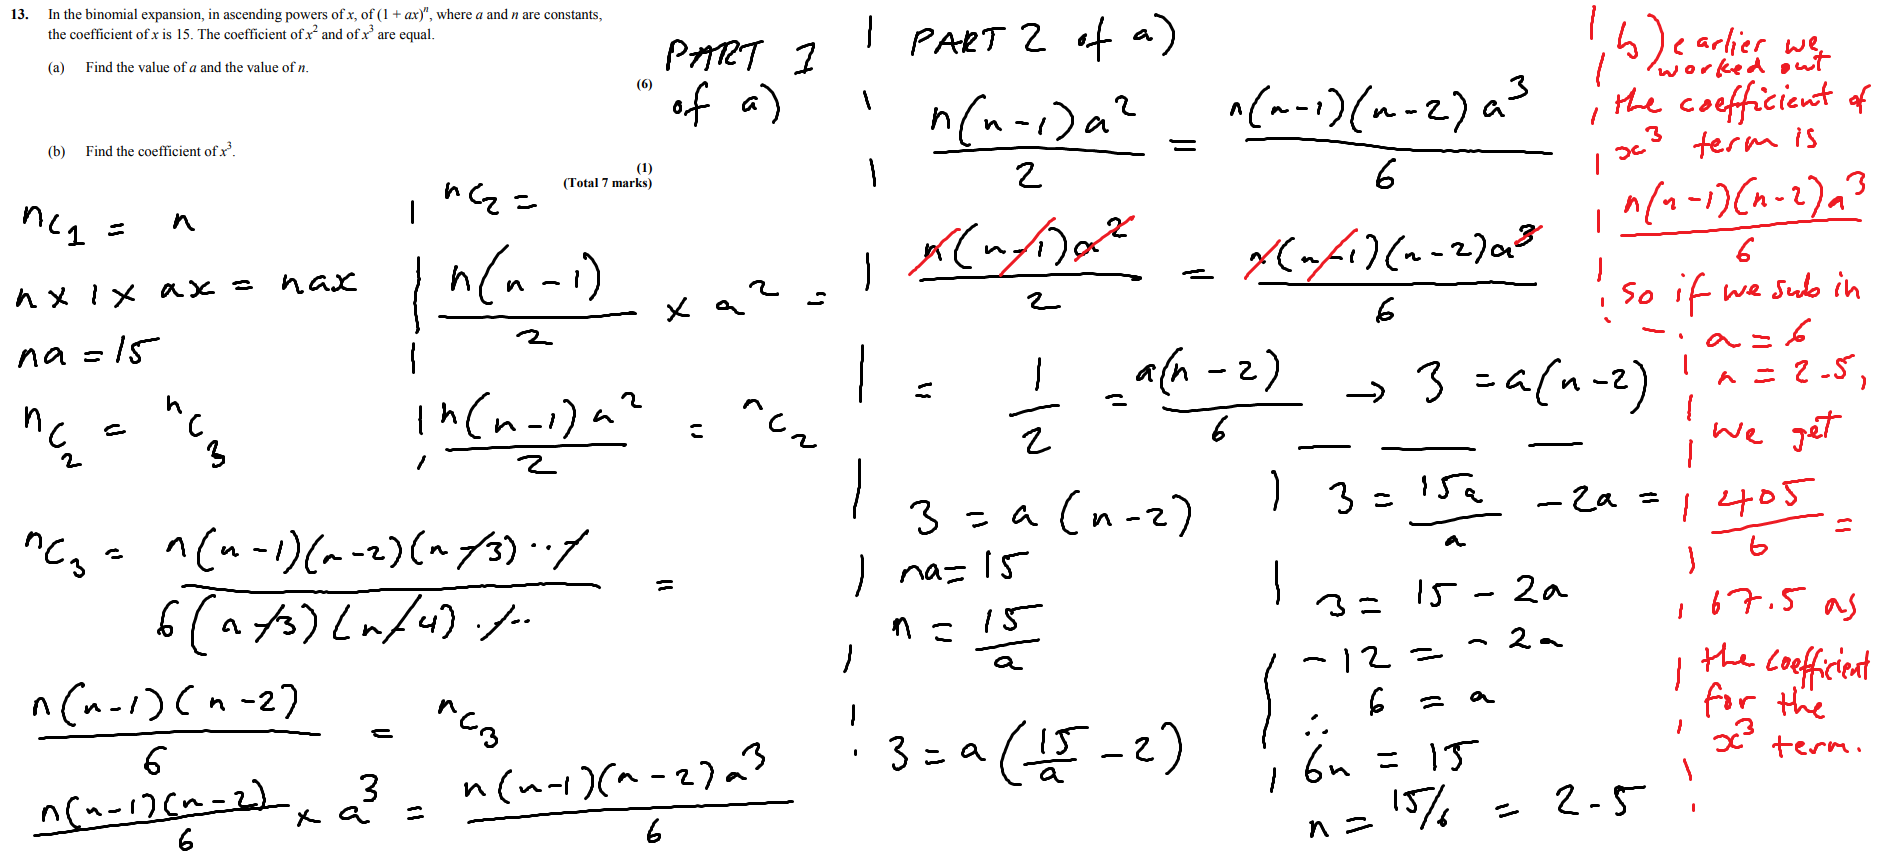 13. In the binomial expansion, in ascending powers of x, of (1 + ax)ⁿ, where a and n are constants,
the coefficient of x is 15. The coefficient of x² and of x³ are equal.
(a) Find the value of a and the value of n.
(6)
(b) Find the coefficient of x³.
(1)
(Total 7 marks)
PART 1
of a)
nC₁ = n
n × 1 × ax = nax
na = 15
nC₂ = nC₃
nC₂ =
n(n-1)/2 × a² =
n(n-1)a²/2 = nC₂
nC₃ = n(n-1)(n-2)(n-3)··/6(n-3)(n-4)··· =
n(n-1)(n-2)/6 = nC₃
n(n-1)(n-2)/6 × a³ = n(n-1)(n-2)a³/6
PART 2 of a)
n(n-1)a²/2 = n(n-1)(n-2)a³/6
n(n-1)a²/2 = n(n-1)(n-2)a³/6
= 1/2 = a(n-2)/6 → 3 = a(n-2)
3 = a(n-2)
na = 15
n = 15/a
3 = a(15/a - 2)
3 = 15a/a - 2a =
3 = 15 - 2a
-12 = -2a
6 = a
∴
6n = 15
n = 15/6 = 2.5
b) earlier we
worked out
the coefficient of
x³ term is
n(n-1)(n-2)a³/6
so if we sub in
a = 6
n = 2.5,
we get
405/6 =
67.5 as
the coefficient
for the
x³ term.